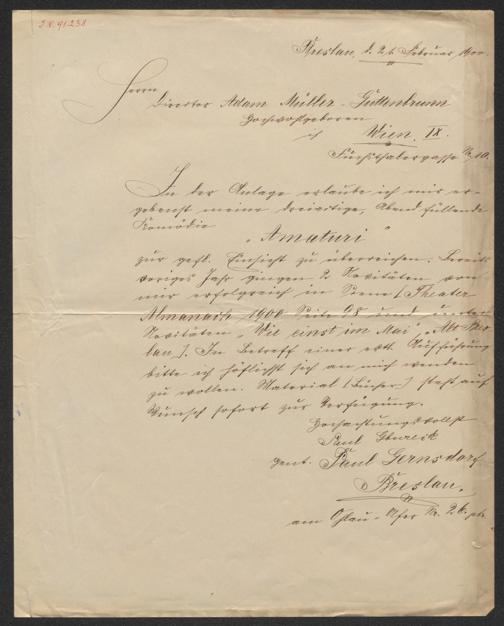 J.N. 91238
Breslau, d. 26. Februar 1900.
Herrn
Director Adam Müller-Guttenbrunn
Hochwohlgeboren
in Wien, IX.
Fuchsthalergasse Nr. 10.
In der Anlage erlaube ich mir er-
gebenst meine dreiaktige, Abend füllende
Komödie
"Amaturi"
zur gefl. Einsicht zu überreichen. Bereits
voriges Jahr gingen 2 Novitäten von
mir erfolgreich in Scene [Theater
Almanach 1900 Seite 98 und unter
Novitäten "Wie einst im Mai",
lau]. In Betreff einer evtl. Aufführung
bitte ich höflichst sich an mich wenden
zu wollen. Material [Bücher] steht auf
Wunsch sofort zur Verfügung.
Hochachtungsvollst
Paul
gent. Paul Gernsdorf
Breslau.
am Ohlau-Ufer Nr. 26. ptr.